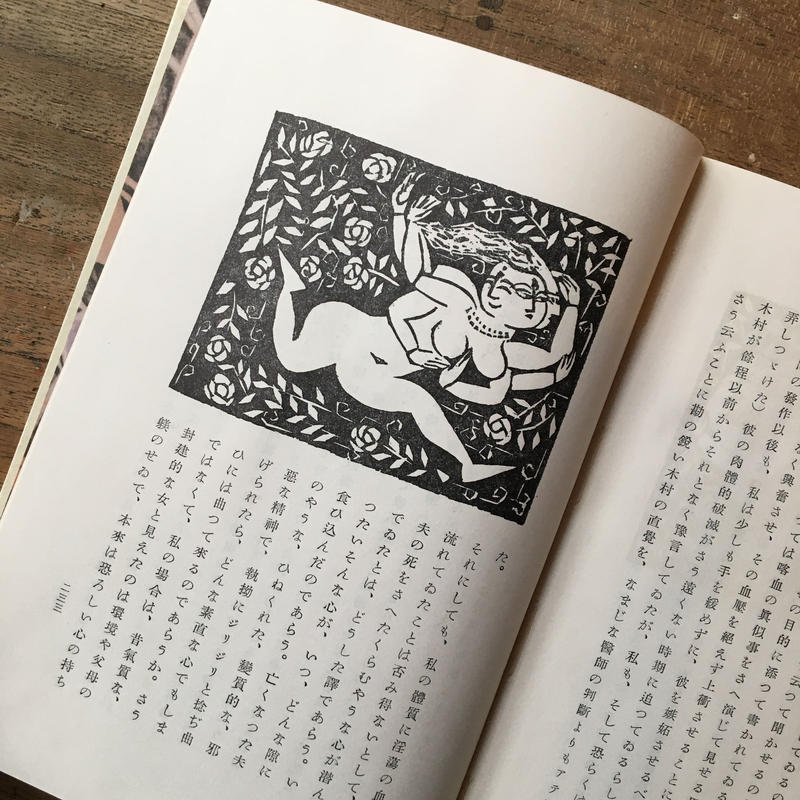 ゐるの
云つて聞かせるの
の目的に添つて書かれてゐる
つては喀血の眞似事をさへ演じて見せる
なく興奮させ、その血壓を絶えず上衝させることに
の發作以後も、私は少しも手を緩めずに、彼を嫉妬させるべ
弄しつゞけた)彼の肉體的破滅がさう遠くない時期に迫つてゐるらし
木村が餘程以前からそれとなく豫言してゐたが、私も、そして恐らくは
さう云ふことに勘の鋭い木村の直覺を、なまじな醫師の判斷よりもアテ
た。
それにしても、私の體質に淫蕩の血
流れてゐたことは否み得ないとして、
夫の死をさへたくらむやうな心が潛ん
でゐたとは、どうした譯であらう。い
つたいそんな心が、いつ、どんな隙に
食ひ込んだのであらう。亡くなつた夫
のやうな、ひねくれた、變質的な、邪
惡な精神で、執拗にジリジリと捻ぢ曲
げられたら、どんな素直な心でもしま
ひには曲つて來るのであらうか。さう
ではなくて、私の場合は、昔氣質な、
封建的な女と見えたのは環境や父母の
躾のせゐで、本來は恐ろしい心の持ち
二三三